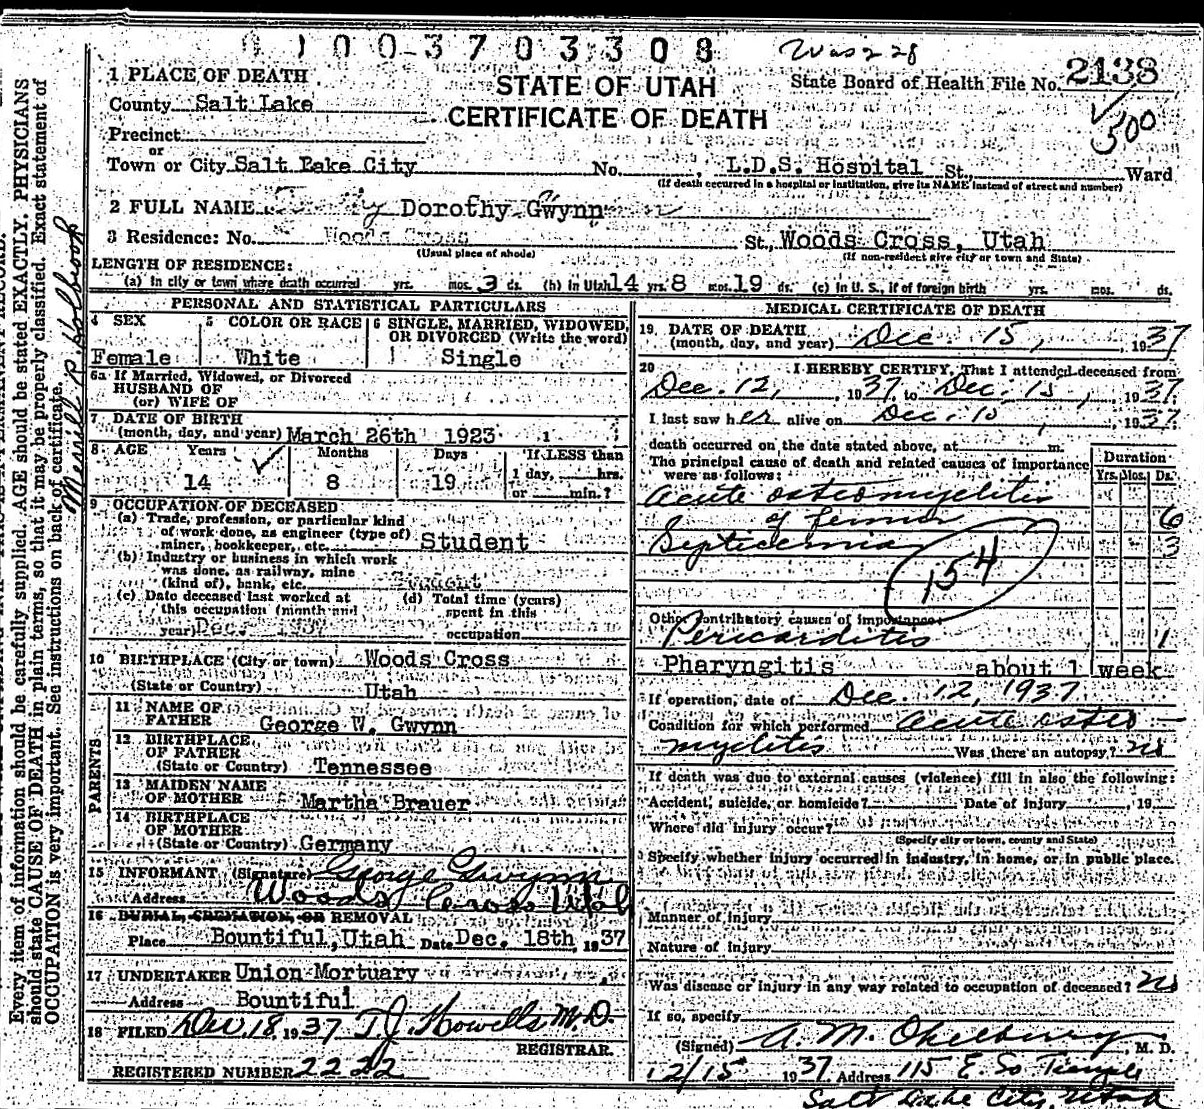 0 1 0 0 3 7 0 3 3 0 8
STATE OF UTAH
CERTIFICATE OF DEATH
State Board of Health File No. 2138
500
1 PLACE OF DEATH
County Salt Lake
Precinct
or
Town or City Salt Lake City No. L.D.S. Hospital St., Ward
(If death occurred in a hospital or institution, give its NAME instead of street and number)
2 FULL NAME Dorothy Gwynn
3 Residence: No. Woods Cross St., Woods Cross, Utah
(Usual place of abode) (If non-resident give city or town and State)
LENGTH OF RESIDENCE:
(a) In city or town where death occurred yrs. mos. 3 ds. (b) In Utah 14 yrs. 8 mos. 19 ds. (c) In U. S., if of foreign birth yrs. mos. ds.
PERSONAL AND STATISTICAL PARTICULARS
4 SEX
Female
5 COLOR OR RACE
White
6 SINGLE, MARRIED, WIDOWED,
OR DIVORCED (Write the word)
Single
6a If Married, Widowed, or Divorced
HUSBAND OF
(or) WIFE OF
7 DATE OF BIRTH
(month, day, and year) March 26th 1923
8 AGE Years Months Days If LESS than
14 8 19 1 day, hrs.
or min.?
9 OCCUPATION OF DECEASED
(a) Trade, profession, or particular kind
of work done, as engineer (type of)
miner, bookkeeper, etc. Student
(b) Industry or business in which work
was done, as railway, mine
(kind of), bank, etc. Student
(c) Date deceased last worked at
this occupation (month and
year) Dec. 1937
(d) Total time (years)
spent in this
occupation
10 BIRTHPLACE (City or town) Woods Cross
(State or Country) Utah
PARENTS
11 NAME OF
FATHER George W. Gwynn
12 BIRTHPLACE
OF FATHER
(State or Country) Tennessee
13 MAIDEN NAME
OF MOTHER Martha Brauer
14 BIRTHPLACE
OF MOTHER
(State or Country) Germany
15 INFORMANT (Signature) George Gwynn
Address Woods Cross Utah
16 BURIAL, CREMATION, OR REMOVAL
Place Bountiful, Utah Date Dec. 18th 1937
17 UNDERTAKER Union Mortuary
Address Bountiful
18 FILED Dec. 18, 1937 T. J. Howells M. D.
REGISTRAR.
REGISTERED NUMBER 2222
MEDICAL CERTIFICATE OF DEATH
19 DATE OF DEATH
(month, day, and year) Dec 15, 1937
20 I HEREBY CERTIFY, That I attended deceased from
Dec. 12, 1937, to Dec. 15, 1937.
I last saw her alive on Dec. 15, 1937.
death occurred on the date stated above, at m.
The principal cause of death and related causes of importance
were as follows:
Duration
Yrs. Mos. Ds.
Acute osteomyelitis
of femur 6
Septicemia 3
154
Other contributory causes of importance:
Pericarditis 1
Pharyngitis about 1 week
If operation, date of Dec. 12, 1937
Condition for which performed Acute osteo-
myelitis Was there an autopsy? no
If death was due to external causes (violence) fill in also the following:
Accident, suicide, or homicide? Date of injury , 19
Where did injury occur?
(Specify city or town, county and State)
Specify whether injury occurred in industry, in home, or in public place.
Manner of injury
Nature of injury
Was disease or injury in any way related to occupation of deceased? no
If so, specify
(Signed) A. M. Okelberry, M. D.
12/15 1937. Address 115 E. So Temple
Salt Lake City, Utah
Every item of information should be carefully supplied. AGE should be stated EXACTLY. PHYSICIANS
should state CAUSE OF DEATH in plain terms, so that it may be properly classified. Exact statement of
OCCUPATION is very important. See instructions on back of certificate.
Merrill R. Holbrook